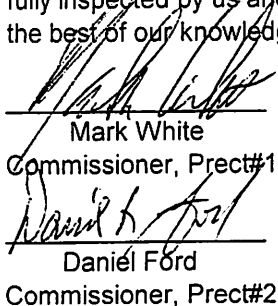 fully inspected by us an
the best of our knowledg
Mark White
Mark White
Commissioner, Prect#1
Daniel L. Ford
Daniel Ford
Commissioner, Prect#2